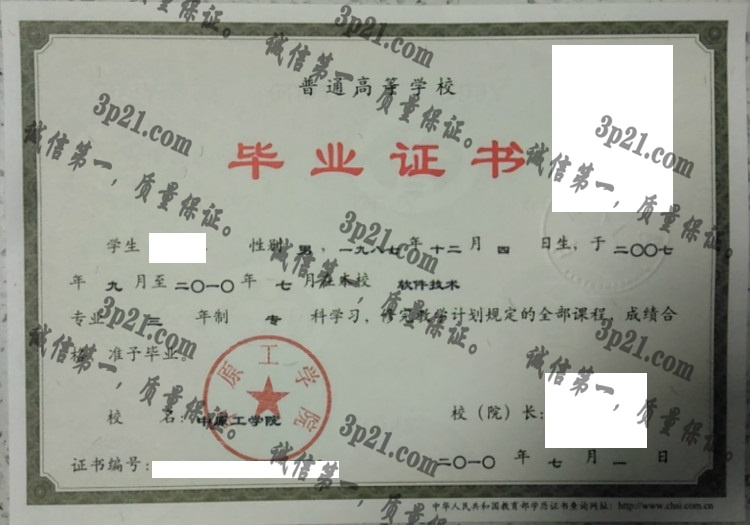 普通高等学校
毕业证书
学生 ，性别 男，一九八七年十二月四日生，于二〇〇七
年九月至二〇一〇年七月在本校 软件技术
专业 三 年制 专 科学习，修完教学计划规定的全部课程，成绩合
格，准予毕业。
校 名：中原工学院
校（院）长：
证书编号：
二〇一〇年七月一日
中华人民共和国教育部学历证书查询网址：http://www.chsi.com.cn
中原工学院
3p21.com
诚信第一，质量保证。
3p21.com
诚信第一，质量保证。
3p21.com
诚信第一，质量保证。
3p21.com
诚信第一，质量保证。
3p21.com
诚信第一，质量保证。
3p21.com
诚信第一，质量保证。
3p21.com
诚信第一，质量保证。